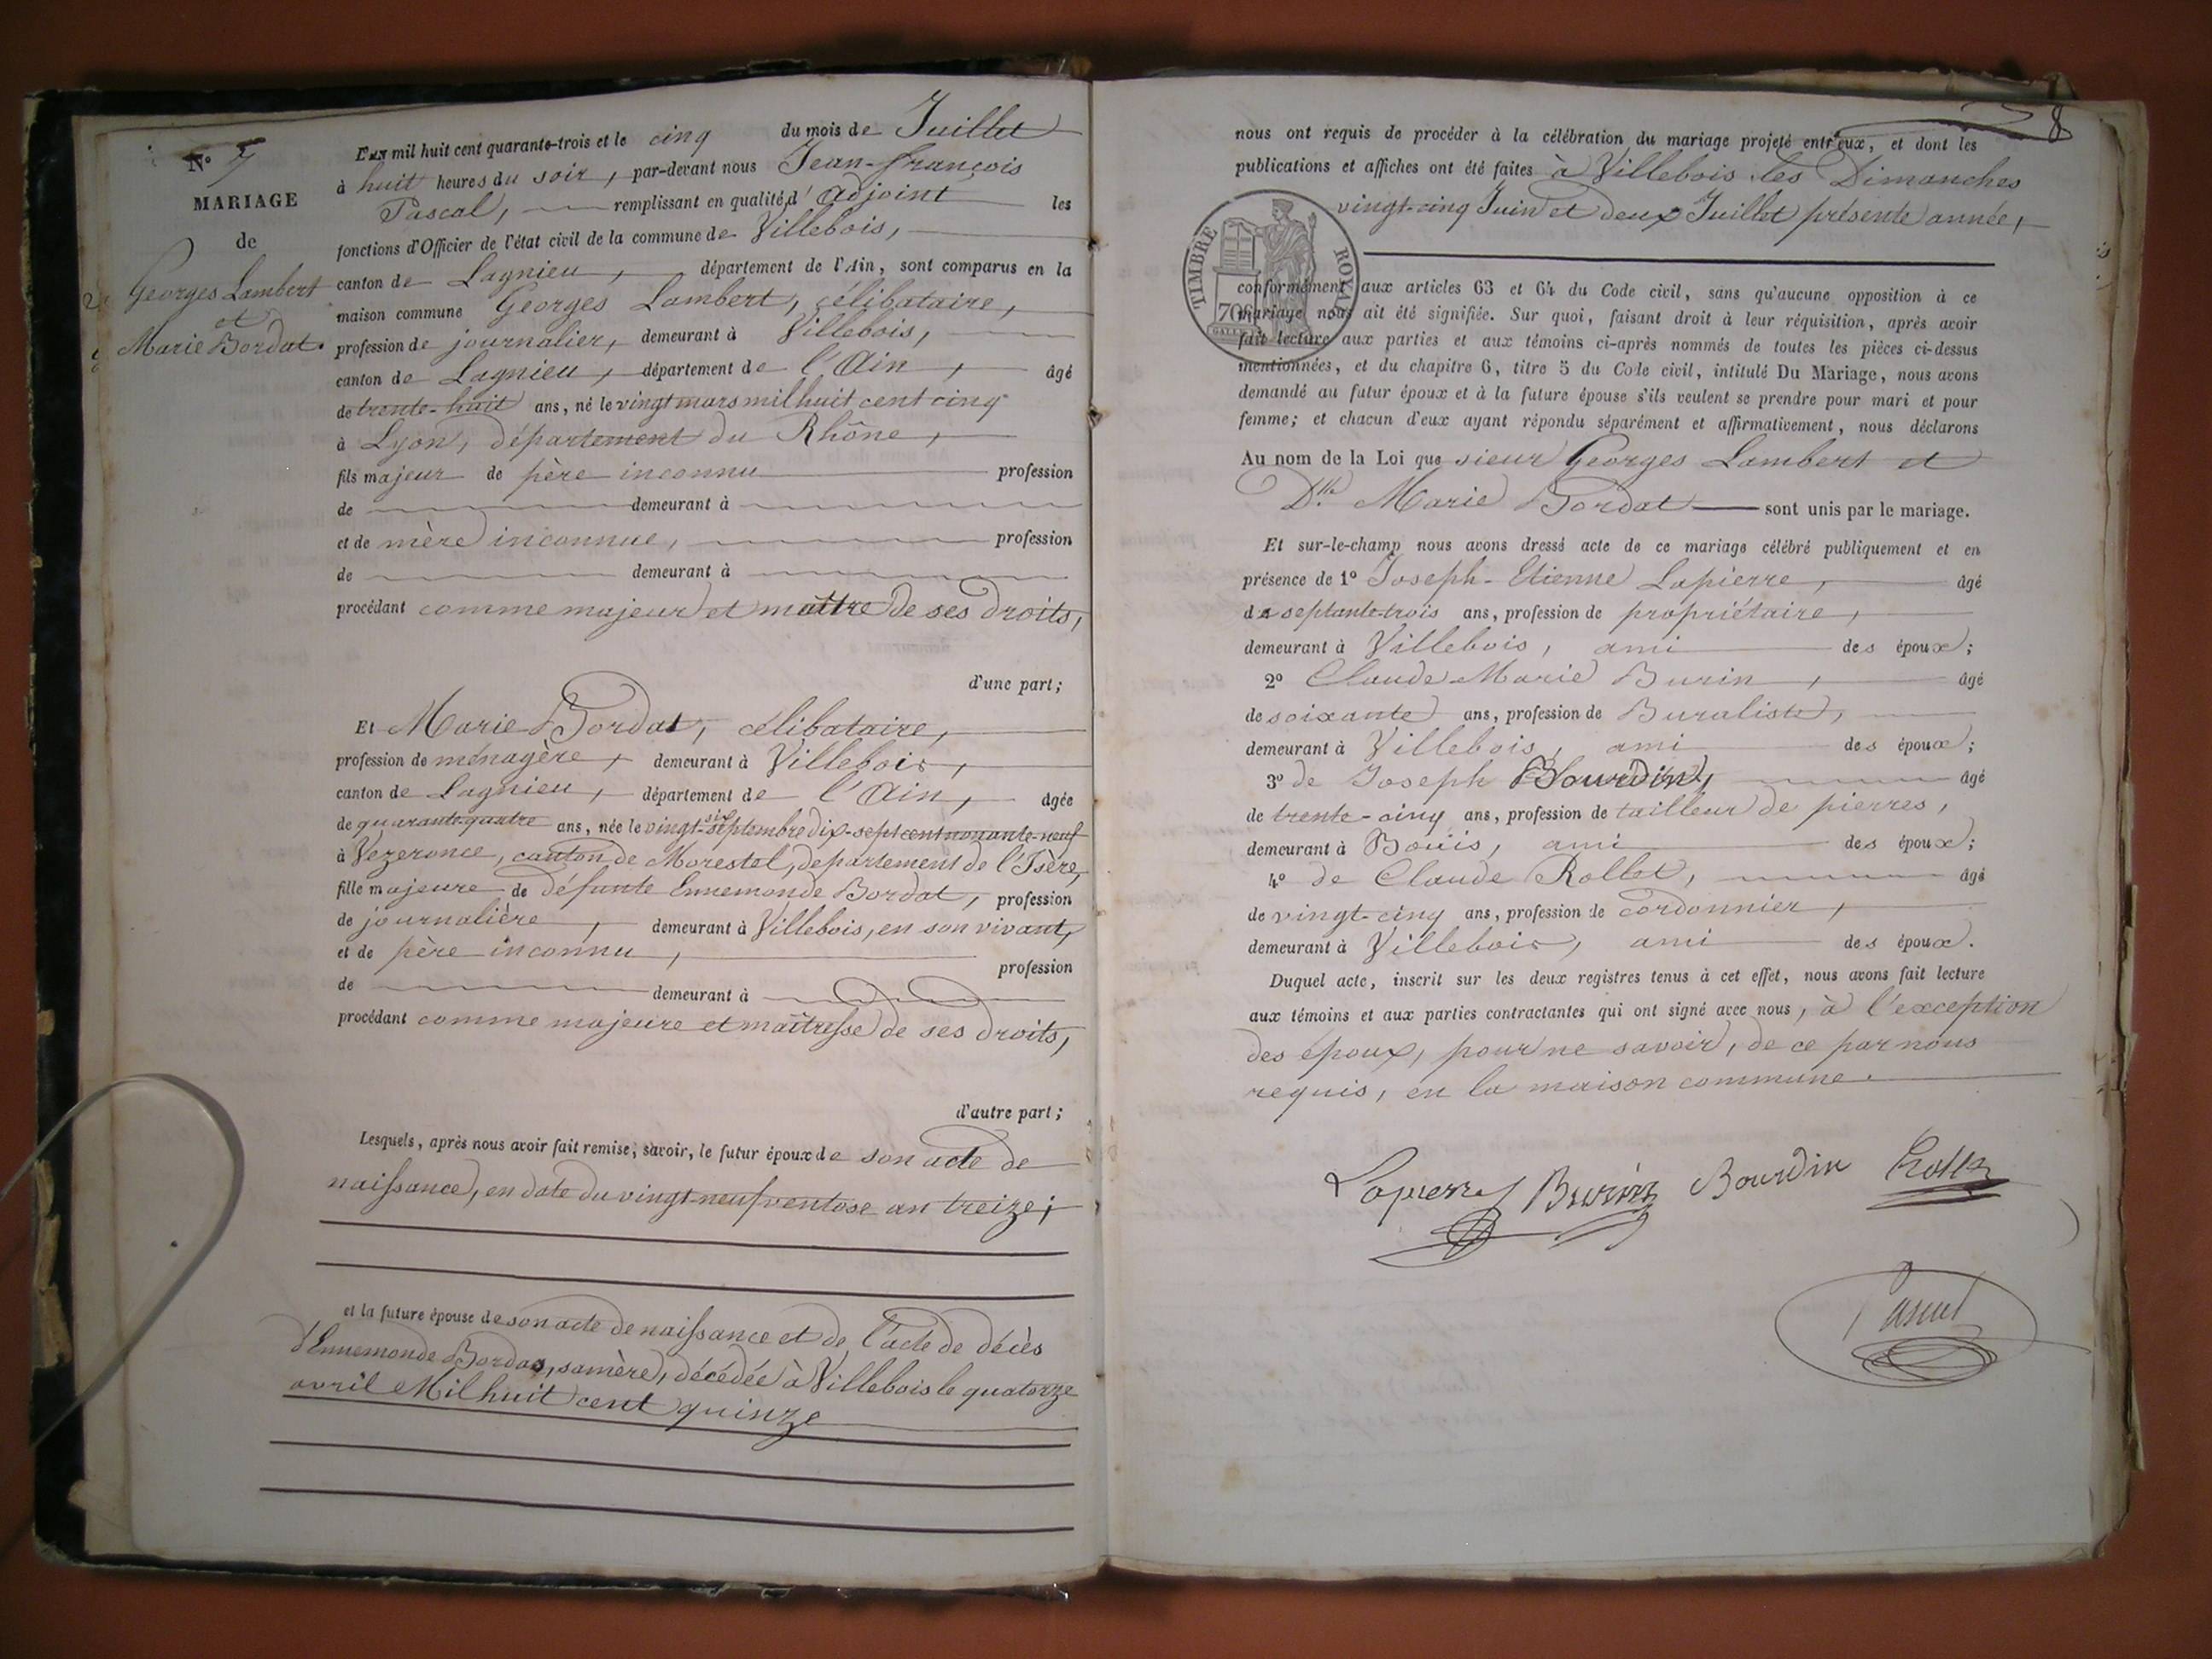 N° 7
MARIAGE
de
Georges Lambert
et
Marie Bordat.
L'an mil huit cent quarante-trois et le cinq du mois de Juillet
à huit heures du soir, par-devant nous Jean-françois
Pascal, remplissant en qualité d'adjoint les
fonctions d'Officier de l'état civil de la commune de Villebois,
canton de Lagnieu, département de l'Ain, sont comparus en la
maison commune Georges Lambert, célibataire,
profession de journalier, demeurant à Villebois,
canton de Lagnieu, département de l'Ain, âgé
de trente-huit ans, né le vingt mars mil huit cent cinq
à Lyon, département du Rhône,
fils majeur de père inconnu profession
de demeurant à
et de mère inconnue, profession
de demeurant à
procédant comme majeur et maître de ses droits,
d'une part;
Et Marie Bordat, célibataire,
profession de ménagère, demeurant à Villebois,
canton de Lagnieu, département de l'Ain, âgée
de quarante-quatre ans, née le vingt-six septembre dix-sept cent nonante-neuf
à Vezeronce, canton de Morestel, département de l'Isère,
fille majeure de défunte Ennemonde Bordat, profession
de journalière, demeurant à Villebois, en son vivant,
et de père inconnu, profession
de demeurant à
procédant comme majeure et maîtresse de ses droits,
d'autre part;
Lesquels, après nous avoir fait remise, savoir, le futur époux de son acte de
naissance, en date du vingt-neuf ventose an treize;
et la future épouse de son acte de naissance et de l'acte de décès
d'Ennemonde Bordat, sa mère, décédée à Villebois le quatorze
avril Mil huit cent quinze
8
nous ont requis de procéder à la célébration du mariage projeté entr'eux, et dont les
publications et affiches ont été faites à Villebois les Dimanches
vingt-cinq Juin et deux Juillet présente année,
TIMBRE ROYAL
70
conformément aux articles 63 et 64 du Code civil, sans qu'aucune opposition à ce
mariage nous ait été signifiée. Sur quoi, faisant droit à leur réquisition, après avoir
fait lecture aux parties et aux témoins ci-après nommés de toutes les pièces ci-dessus
mentionnées, et du chapitre 6, titre 5 du Code civil, intitulé Du Mariage, nous avons
demandé au futur époux et à la future épouse s'ils veulent se prendre pour mari et pour
femme; et chacun d'eux ayant répondu séparément et affirmativement, nous déclarons
Au nom de la Loi que sieur Georges Lambert et
Dlle Marie Bordat sont unis par le mariage.
Et sur-le-champ nous avons dressé acte de ce mariage célébré publiquement et en
présence de 1° Joseph-Etienne Lapierre, âgé
de septante-trois ans, profession de propriétaire,
demeurant à Villebois, ami des époux;
2° Claude Marie Burin, âgé
de soixante ans, profession de Buraliste,
demeurant à Villebois, ami des époux;
3° de Joseph Bourdin, âgé
de trente-cinq ans, profession de tailleur de pierres,
demeurant à Bouis, ami des époux;
4° de Claude Rollet, âgé
de vingt-cinq ans, profession de cordonnier,
demeurant à Villebois, ami des époux.
Duquel acte, inscrit sur les deux registres tenus à cet effet, nous avons fait lecture
aux témoins et aux parties contractantes qui ont signé avec nous, à l'exception
des époux, pour ne savoir, de ce par nous
requis, en la maison commune.
Lapierre Burin Bourdin Rollet
Pascal